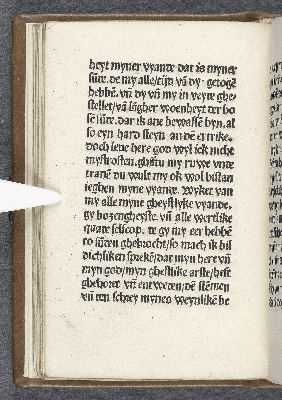 heyt myner vyante dat is myner
sūte. de my alle tijd vñ dy getogē
hebbē. vñ dy vñ my in veyte ghe
stellet/vñ lēgher woenheyt der bo
sē sūte. dar ik ane bewassē byn. al
so eyn hard steyn an dē ertrike.
Doch leue here god wyl ick nicht
mystrosten. ghiftu my ruwe vnte
tranē du wult my ok wol bistan
ieghen myne vyante. Wyket van
my alle myne gheystlyke vyande.
gy bozengheyste. vñ alle wertlike
quate selscop. te gy my eer hebbē
to sūten ghebrocht/so mach ik bil
dichliken sprekē/dat myn here vñ
myn god/myn ghestlike artste/heft
ghehoret vñ entweten/de stēmen
vñ ten schrey mynes weynlikē be